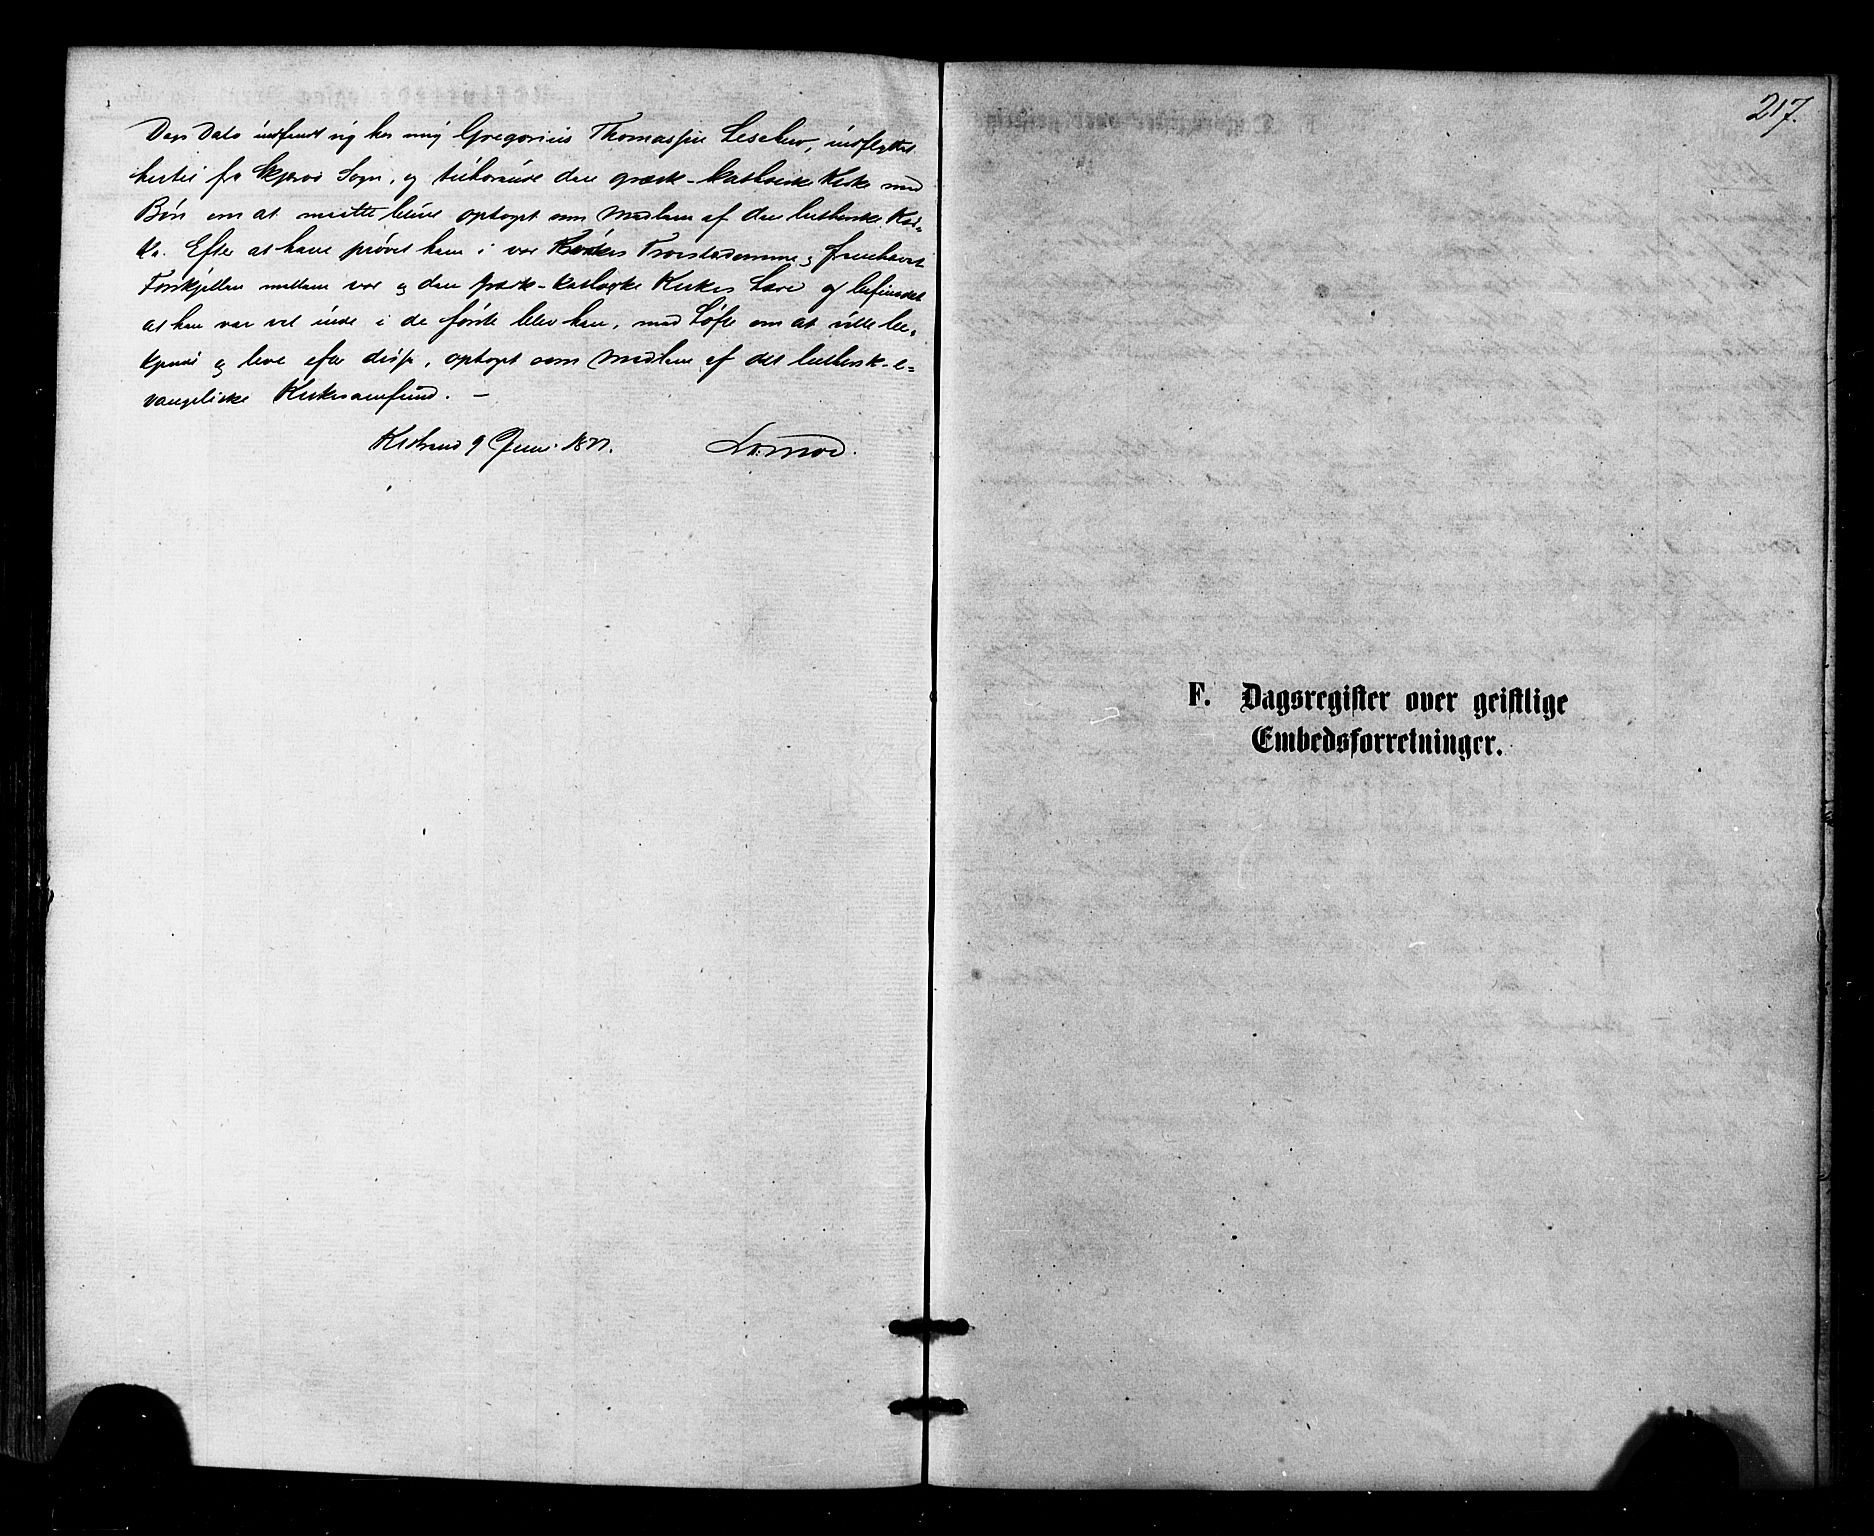 Dags Dato indfandt sig hos mig Gregorius Thomassen, indflyttet
hertil fra Skjervø Sogn, og tilhørende den græsk-katholske Kirke med
Bøn om at maatte blive optaget som Medlem af den lutherske Kir-
ke. Efter at have prøvet ham i vor Kirkes Troeslærdomme og fremhævet
Forskjellen mellem vor og den græsk-katholske Kirkes Lære og befundet
at han var vel inde i de første blev han, med Løfte om at ville be-
kjende og leve efter disse, optaget som Medlem af det luthersk-e-
vangeliske Kirkesamfund. -
Kistrand 9 Juni 1877.
217.
F. Dagsregister over geistlige
Embedsforretninger.